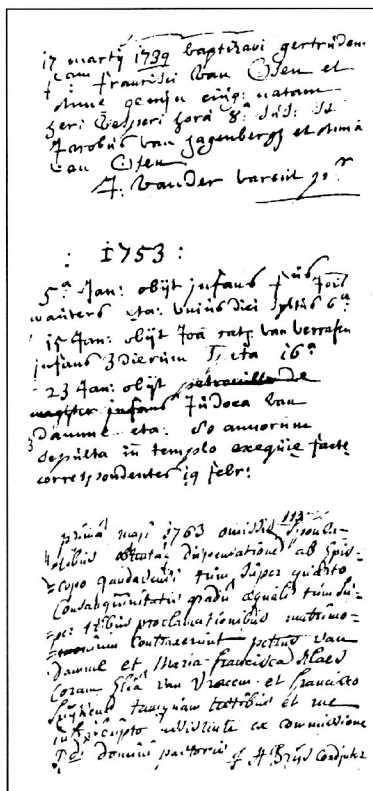 17 martij 1739 baptizavi gertrudem
f am francisci van Osen et
Anne ejus: natam
heri Vesperi hora 8a sus: st
Jacobus van Jagenbergh et Anna
van Osen
J: vander varent
: 1753 :
5a Jan: obijt infans f ius Jois
wauters eta: unius diei spltus 6a
15 Jan: obijt Joa cath: van verrafen
infans 3 dierum eta 16a
23 Jan: obijt petronilla de
infans Judoca van
Damme eta: 80 annorum
sepulta in templo exequiæ factæ
correspondentes 19 febr:
prima maji 1763 omissis sponsa-
libus obtenta dispensatione ab Epis-
=copo gandavensi tum super quarto
Consanguinitatis gradu æquali tum su-
=per tribus proclamationibus matrimo-
contraxerunt petrus van
Damme et Maria francisca Maes
Coram Van Vraecem et francisco
tanquam testibus et me
infrascripto assistente ex commissione
Rdi domini pastoris J A Brijs